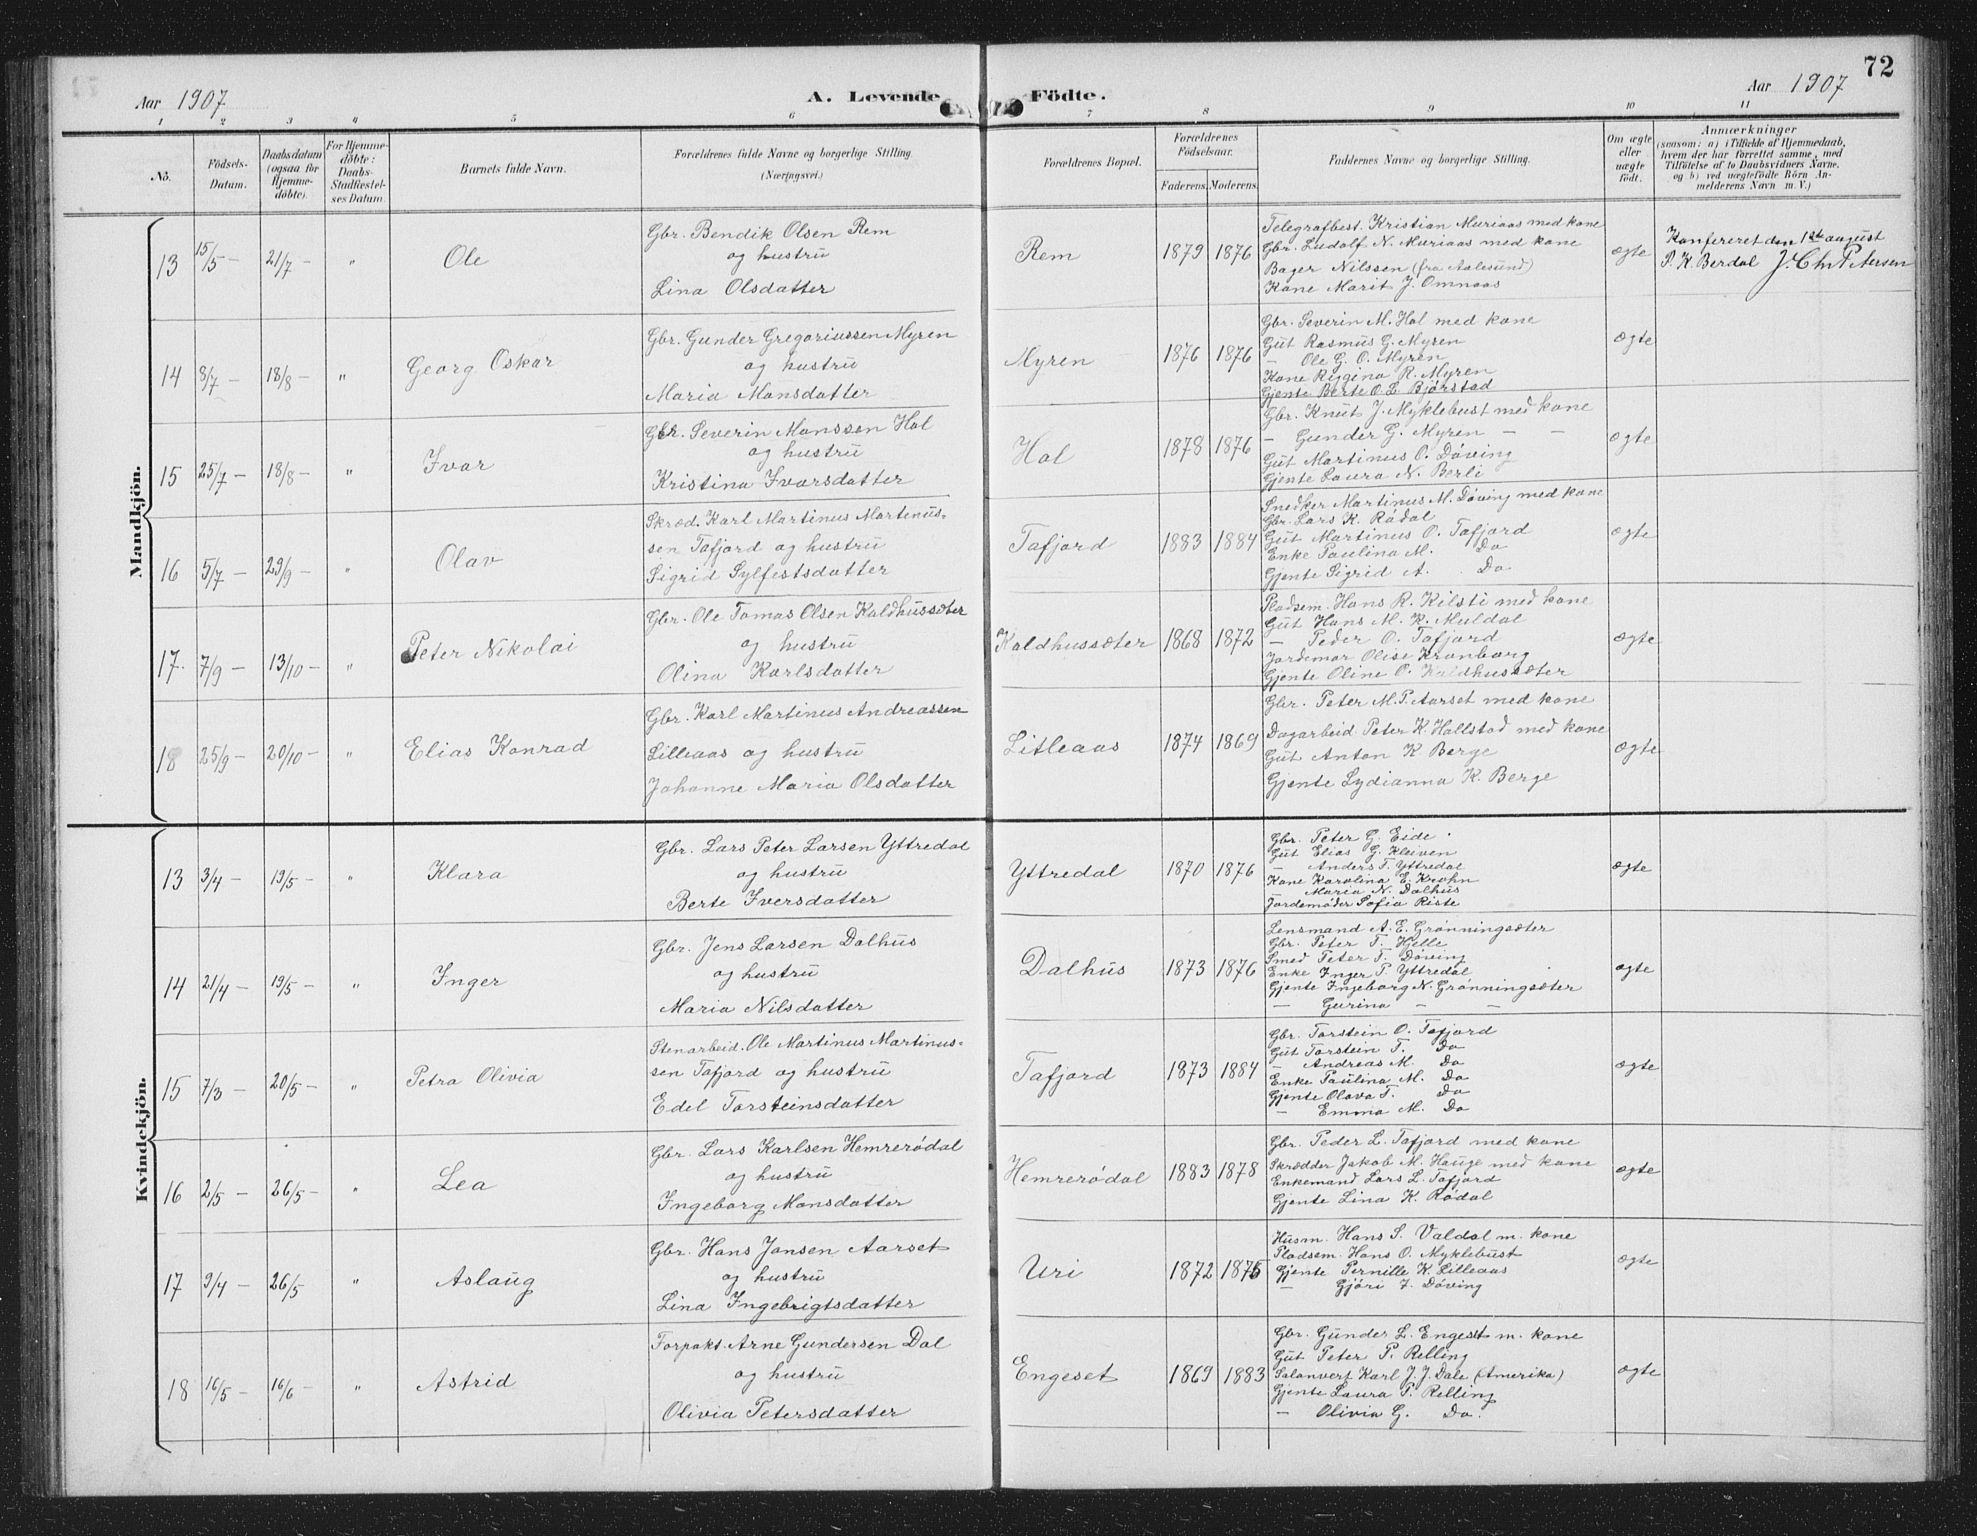 72
Aar 1907
A. Levende Födte.
Aar 1907
1 2 3 4 5 6 7 8 9 10 11
No.
Födsels-
Datum.
Daabsdatum
(ogsaa for
Hjemme-
döbte).
For Hjemme-
döbte:
Daabs-
Stadfæstel-
ses Datum.
Barnets fulde Navn.
Forældrenes fulde Navne og borgerlige Stilling
(Næringsvei.)
Forældrenes Bopæl.
Forældrenes
Födselsaar.
Faderens. Moderens.
Faddernes Navne og borgerlige Stilling.
Om ægte
eller
uægte
födt.
Anmærkninger
(saasom: a) i Tilfælde af Hjemmedaab,
hvem der har forrettet samme, med
Tilföielse af to Daabsvidners Navne,
og b) ved uægtefödte Börn An-
melderens Navn m. V.)
Mandkjön.
13 15/5 – 21/7 – " Ole
Gbr. Bendik Olsen Rem
og hustru
Lina Olsdatter
Rem 1879 1876
Telegrafbest. Kristian Muriaas med kone
Gbr. Ludolf N. Muriaas med kone
Bager Nilssen (fra Aalesund)
Kone Marit J. Omnaas
ægte
Konfereret den 1ste august
P. K. Berdal J. Chr. Petersen
14 8/7 – 18/8 – " Georg Oskar
Gbr. Gunder Gregoriussen Myren
og hustru
Maria Monsdatter
Myren 1876 1876
Gbr. Severin M. Hol med kone
Gut Rasmus G. Myren
– Ole G. O. Myren
Kone Reggina R. Myren
Gjente Berte O. L. Bjørstad
ægte
15 25/7 – 18/8 – " Ivar
Gbr. Severin Monssen Hol
og hustru
Kristina Ivarsdatter
Hol 1878 1876
Gbr. Knut J. Myklebust med kone
– Gunder G. Myren – –
Gut Martinus O. Døving
Gjente Laura N. Berli
ægte
16 5/7 – 29/9 – " Olav
Skræd. Karl Martinus Martenus-
sen Tafjord og hustru
Sigrid Sylfestsdatter
Tafjord 1883 1884
Snedker Martinus M. Døving med kone
Gbr. Lars K. Rødal
Gut Martinus O. Tafjord
Enke Paulina M. Do
Gjente Sigrid A. Do
ægte
17. 7/9 – 13/10 – " Peter Nikolai
Gbr. Ole Tomas Olsen Kaldhussæter
og hustru
Olina Karlsdatter
Kaldhussæter 1868 1872
Pladsem. Hans R. Kilsti med kone
Gut Hans M. K. Muldal
– Peder O. Tafjord
Jordemor Olise Kronborg
Gjente Oline O. Kaldhussæter
ægte
18 25/9 – 20/10 – " Elias Konrad
Gbr. Karl Martinus Andreassen
Lilleaas og hustru
Johanne Maria Olsdatter
Litleaas 1874 1869
Gbr. Peter M. P. Aarset med kone
Dagarbeid. Peter K. Hallstad med kone
Gut Anton K. Berge
Gjente Lydianna K. Berge
ægte
Kvindekjön.
13 3/4 – 19/5 – " Klara
Gbr. Lars Peter Larsen Yttredal
og hustru
Berte Iversdatter
Yttredal 1870 1876
Gbr. Peter G. Eide.
Gut Elias G. Kleiven
– Anders T. Yttredal
Kone Karolina E. Krohn
Maria N. Dalhus
Jordemøder Sofia Riste
ægte
14 21/4 – 19/5 – " Inger
Gbr. Jens Larsen Dalhus
og hustru
Maria Nilsdatter
Dalhus 1873 1876
Lensmand A. E. Grønningsæter
Gbr. Peter T. Hjelle
Smed Peter T. Døving
Enke Inger P. Yttredal
Gjente Ingeborg N. Grønningsæter
– Gurina – –
ægte
15 7/3 – 20/5 – " Petra Olivia
Stenarbeid. Ole Martinus Martinus-
sen Tafjord og hustru
Edel Torsteinsdatter
Tafjord 1873 1884
Gbr. Torstein O. Tafjord
Gut Torstein T. Do
– Andreas M. Do
Enke Paulina M. Do
Gjente Olava T. Do
– Emma M. Do
ægte
16 2/5 – 26/5 – " Lea
Gbr. Lars Karlsen Hemrerødal
og hustru
Ingeborg Monsdatter
Hemrerødal 1883 1878
Gbr. Peder L. Tafjord med kone
Skrædder Jakob M. Hauge med kone
Enkemand Lars L. Tafjord
Gjente Lina K. Rødal
ægte
17 9/4 – 26/5 " Aslaug
Gbr. Hans Jonsen Aarset
og hustru
Lina Ingebrigtsdatter
Uri 1872 1875
Husm. Hans S. Valdal m. kone
Pladsem. Hans O. Myklebust
Gjente Pernille K. Lilleaas
– Gjøri I. Døving
ægte
18 16/5 – 16/6 – " Astrid
Forpakt. Arne Gundersen Dal
og hustru
Olivia Petersdatter
Engeset 1869 1883
Gbr. Gunder L. Engeset m. kone
Gut Peter P. Relling
Salonvert Karl J. J. Dale (Amerika)
Gjente Laura P. Relling
– Olivia G. Do.
ægte